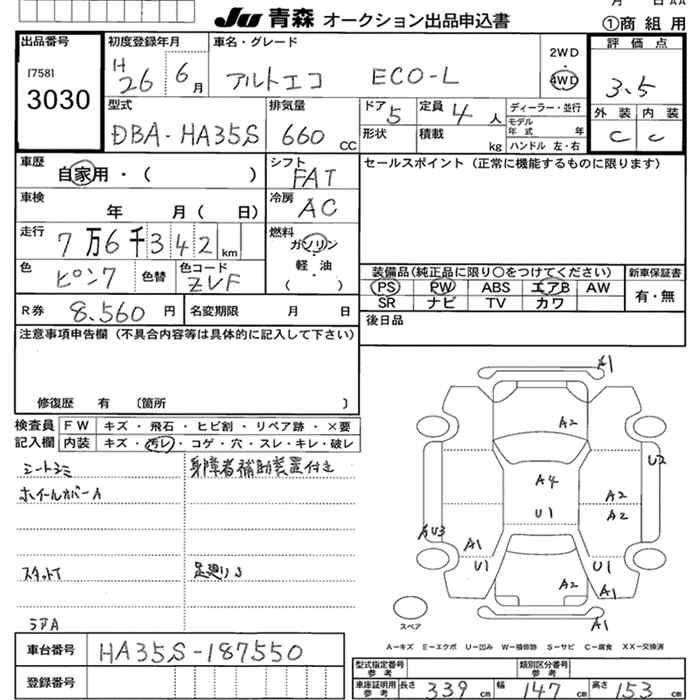 Ju 青森 オークション出品申込書
①商組用
出品番号
17581
3030
初度登録年月
H 26 6月
車名・グレード
アルトエコ ECO-L
2WD
4WD
評価点
3.5
外装 内装
C C
型式
DBA-HA35S
排気量
660 CC
ドア 5
形状
定員 4 人
積載 kg
ディーラー・並行
モデル年式 年
ハンドル 左・右
車歴
自家用・( )
シフト
FAT
セールスポイント(正常に機能するものに限ります)
車検
年 月( 日)
冷房
AC
走行
7万6千342km
燃料
ガソリン
軽・油
( ・ )
色
ピンク
色替
色コード
ZVF
装備品(純正品に限り○をつけてください)
新車保証書
PS PW ABS エアB AW
有・無
SR ナビ TV カワ
R券 8,560 円
名変期限 月 日
後日品
注意事項申告欄(不具合内容等は具体的に記入して下さい)
修復歴 有 〔箇所 〕
検査員記入欄
FW キズ・飛石・ヒビ割・リペア跡・×要
内装 キズ・汚レ・コゲ・穴・スレ・キレ・破レ
シートヨミ
身障者補助装置付き
ホイールカバーA
スタットT
足廻りS
リアA
A1
A2
U2
A4
A2
U1
A2
AU3
A1
U1
U1
A2
A1
A1
スペア
A-キズ E-エクボ U-凹み W-補修跡 S-サビ C-腐食 XX-交換済
車台番号
HA35S-187550
登録番号
型式指定番号 参考
類別区分番号 参考
車庫証明用 参考
長さ 339 cm 幅 147 cm 高さ 153 cm